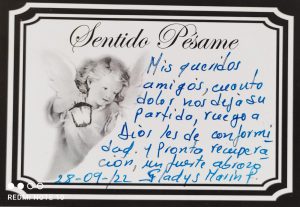 Sentido Pésame
Mis queridos
amigos, cuanto
dolor nos deja su
Partido, ruego a
Dios les de conformi
dad. y Pronta recupera
ción, un fuerte abrazo
28-09-22 Gladys Marin P.
REDMI NOTE 10